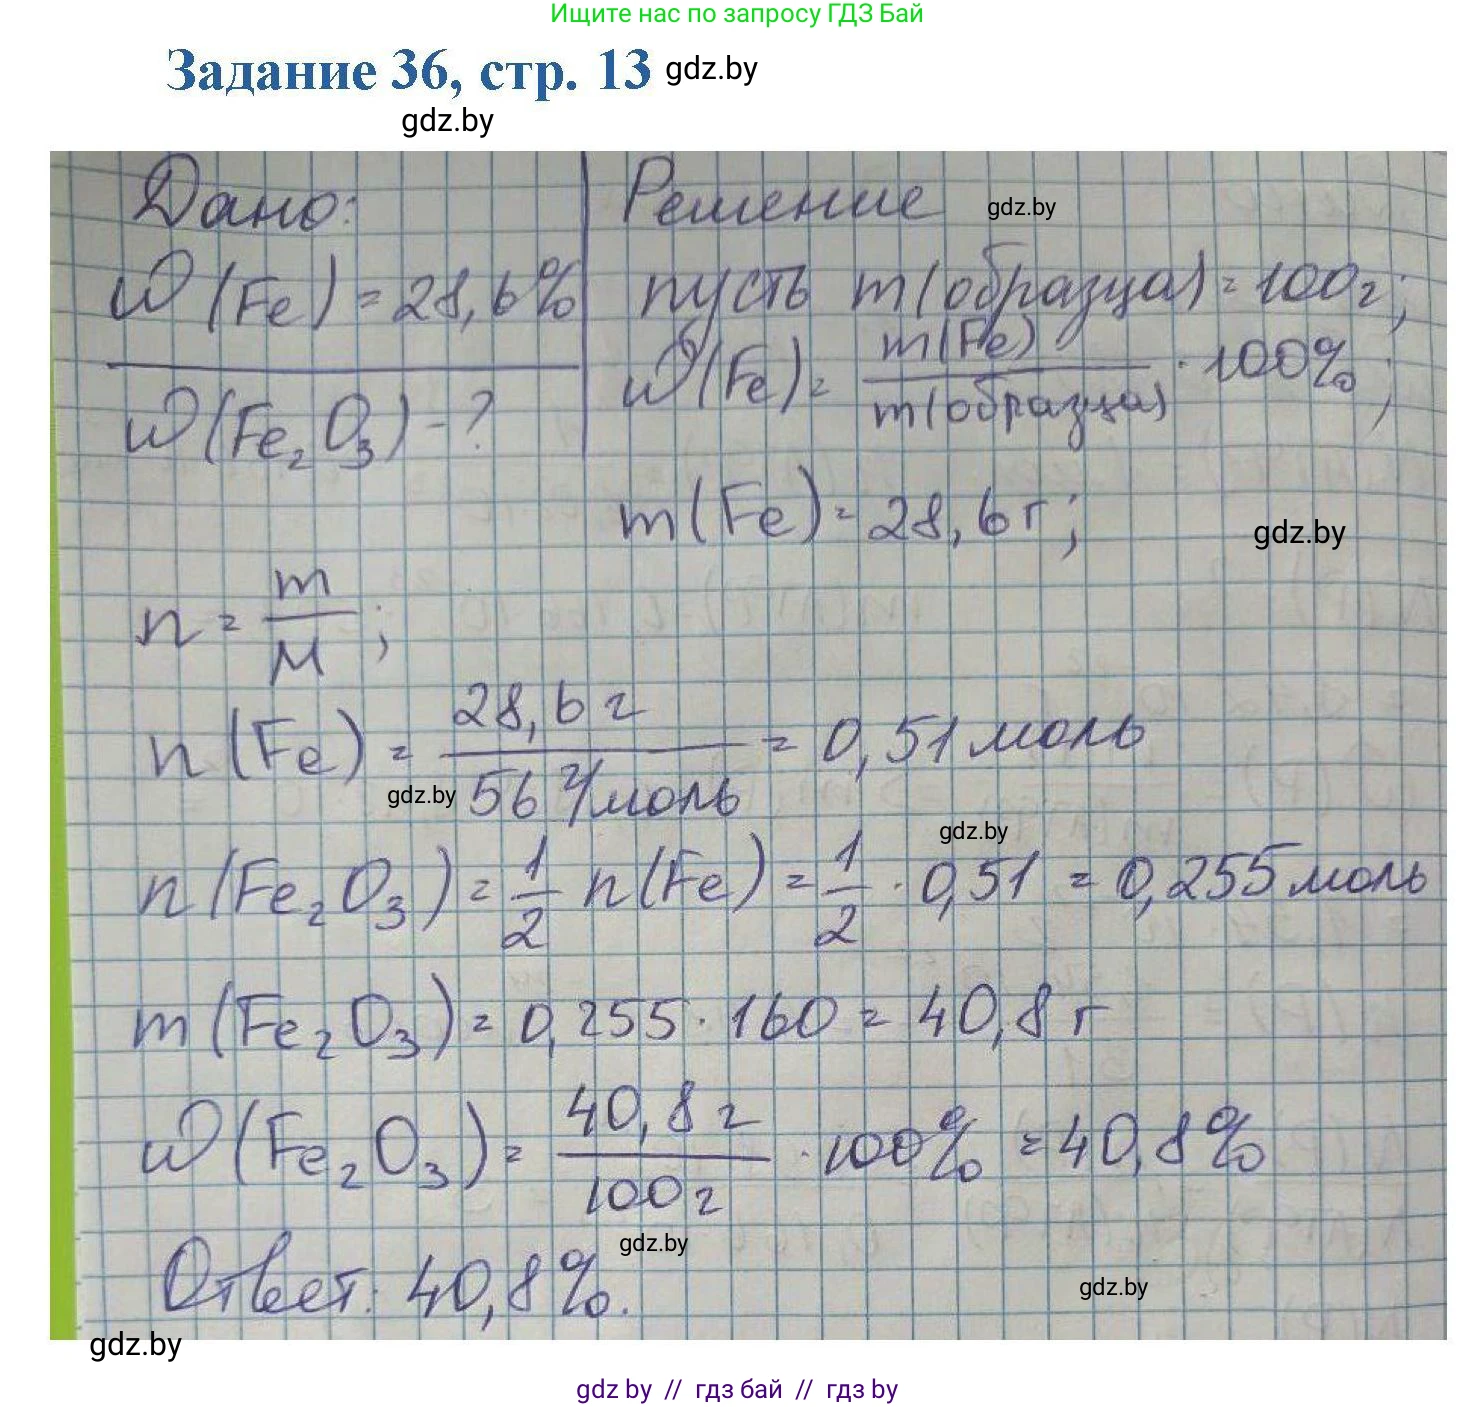 Ищите нас по запросу ГДЗ Бай
Задание 36, стр. 13 gdz.by
gdz.by
Дано: Решение gdz.by
w(Fe) = 28,6% пусть m(образца) = 100г;
w(Fe) = m(Fe)/m(образца) · 100%;
w(Fe₂O₃) - ?
m(Fe) = 28,6 г; gdz.by
n = m/M;
n(Fe) = 28,6 г/56 г/моль = 0,51 моль
gdz.by
gdz.by
n(Fe₂O₃) = 1/2 n(Fe) = 1/2 · 0,51 = 0,255 моль
m(Fe₂O₃) = 0,255 · 160 = 40,8 г
w(Fe₂O₃) = 40,8 г/100 г · 100% = 40,8%
gdz.by
Ответ: 40,8%.
gdz.by
gdz.by
gdz by // гдз бай // гдз by